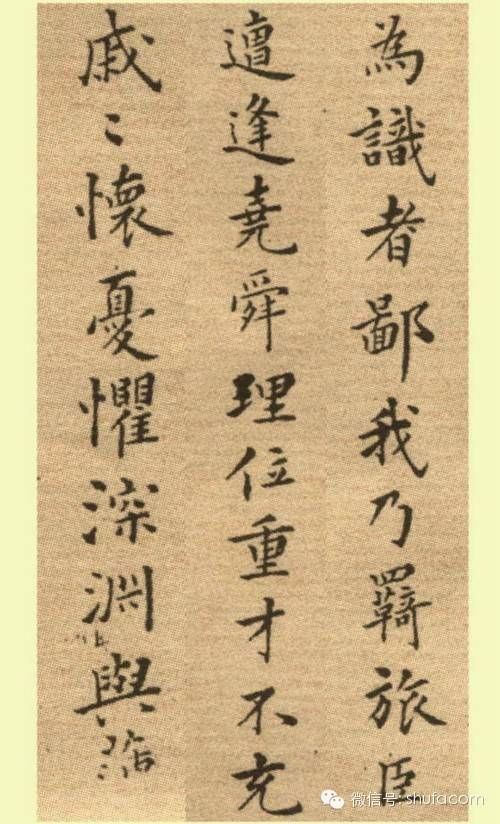 為識者鄙我乃羇旅臣
遭逢堯舜理位重才不充
戚〻懷憂懼深淵與
微信号: shufacom